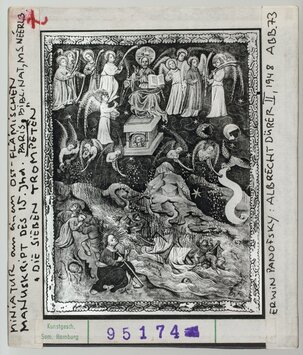 MINIATUR aus einem OST-FLÄMISCHEN
MANUSKRIPT DES 15. Jhd. PARIS, BIBL. NAT, MS NÉERL 3.
"DIE SIEBEN TROMPETEN"
ERWIN PANOFSKY: ALBRECHT DÜRER II, 1948 ABB 73
Kunstgesch.
Sem. Hamburg
95174